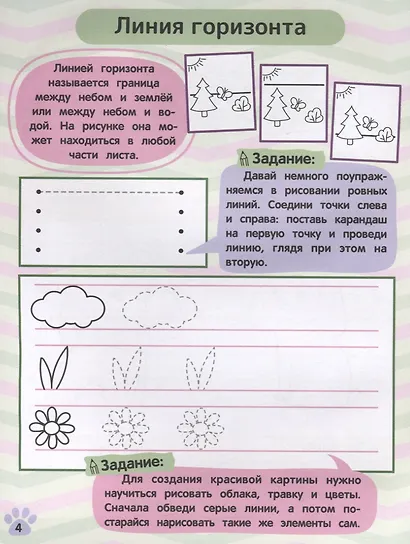 Линия горизонта
Линией горизонта
называется граница
между небом и землёй
или между небом и во-
дой. На рисунке она мо-
жет находиться в любой
части листа.
Задание:
Давай немного поупраж-
няемся в рисовании ровных
линий. Соедини точки слева
и справа: поставь карандаш
на первую точку и проведи
линию, глядя при этом на
вторую.
Задание:
Для создания красивой картины нужно
научиться рисовать облака, травку и цветы.
Сначала обведи серые линии, а потом по-
старайся нарисовать такие же элементы сам.
4